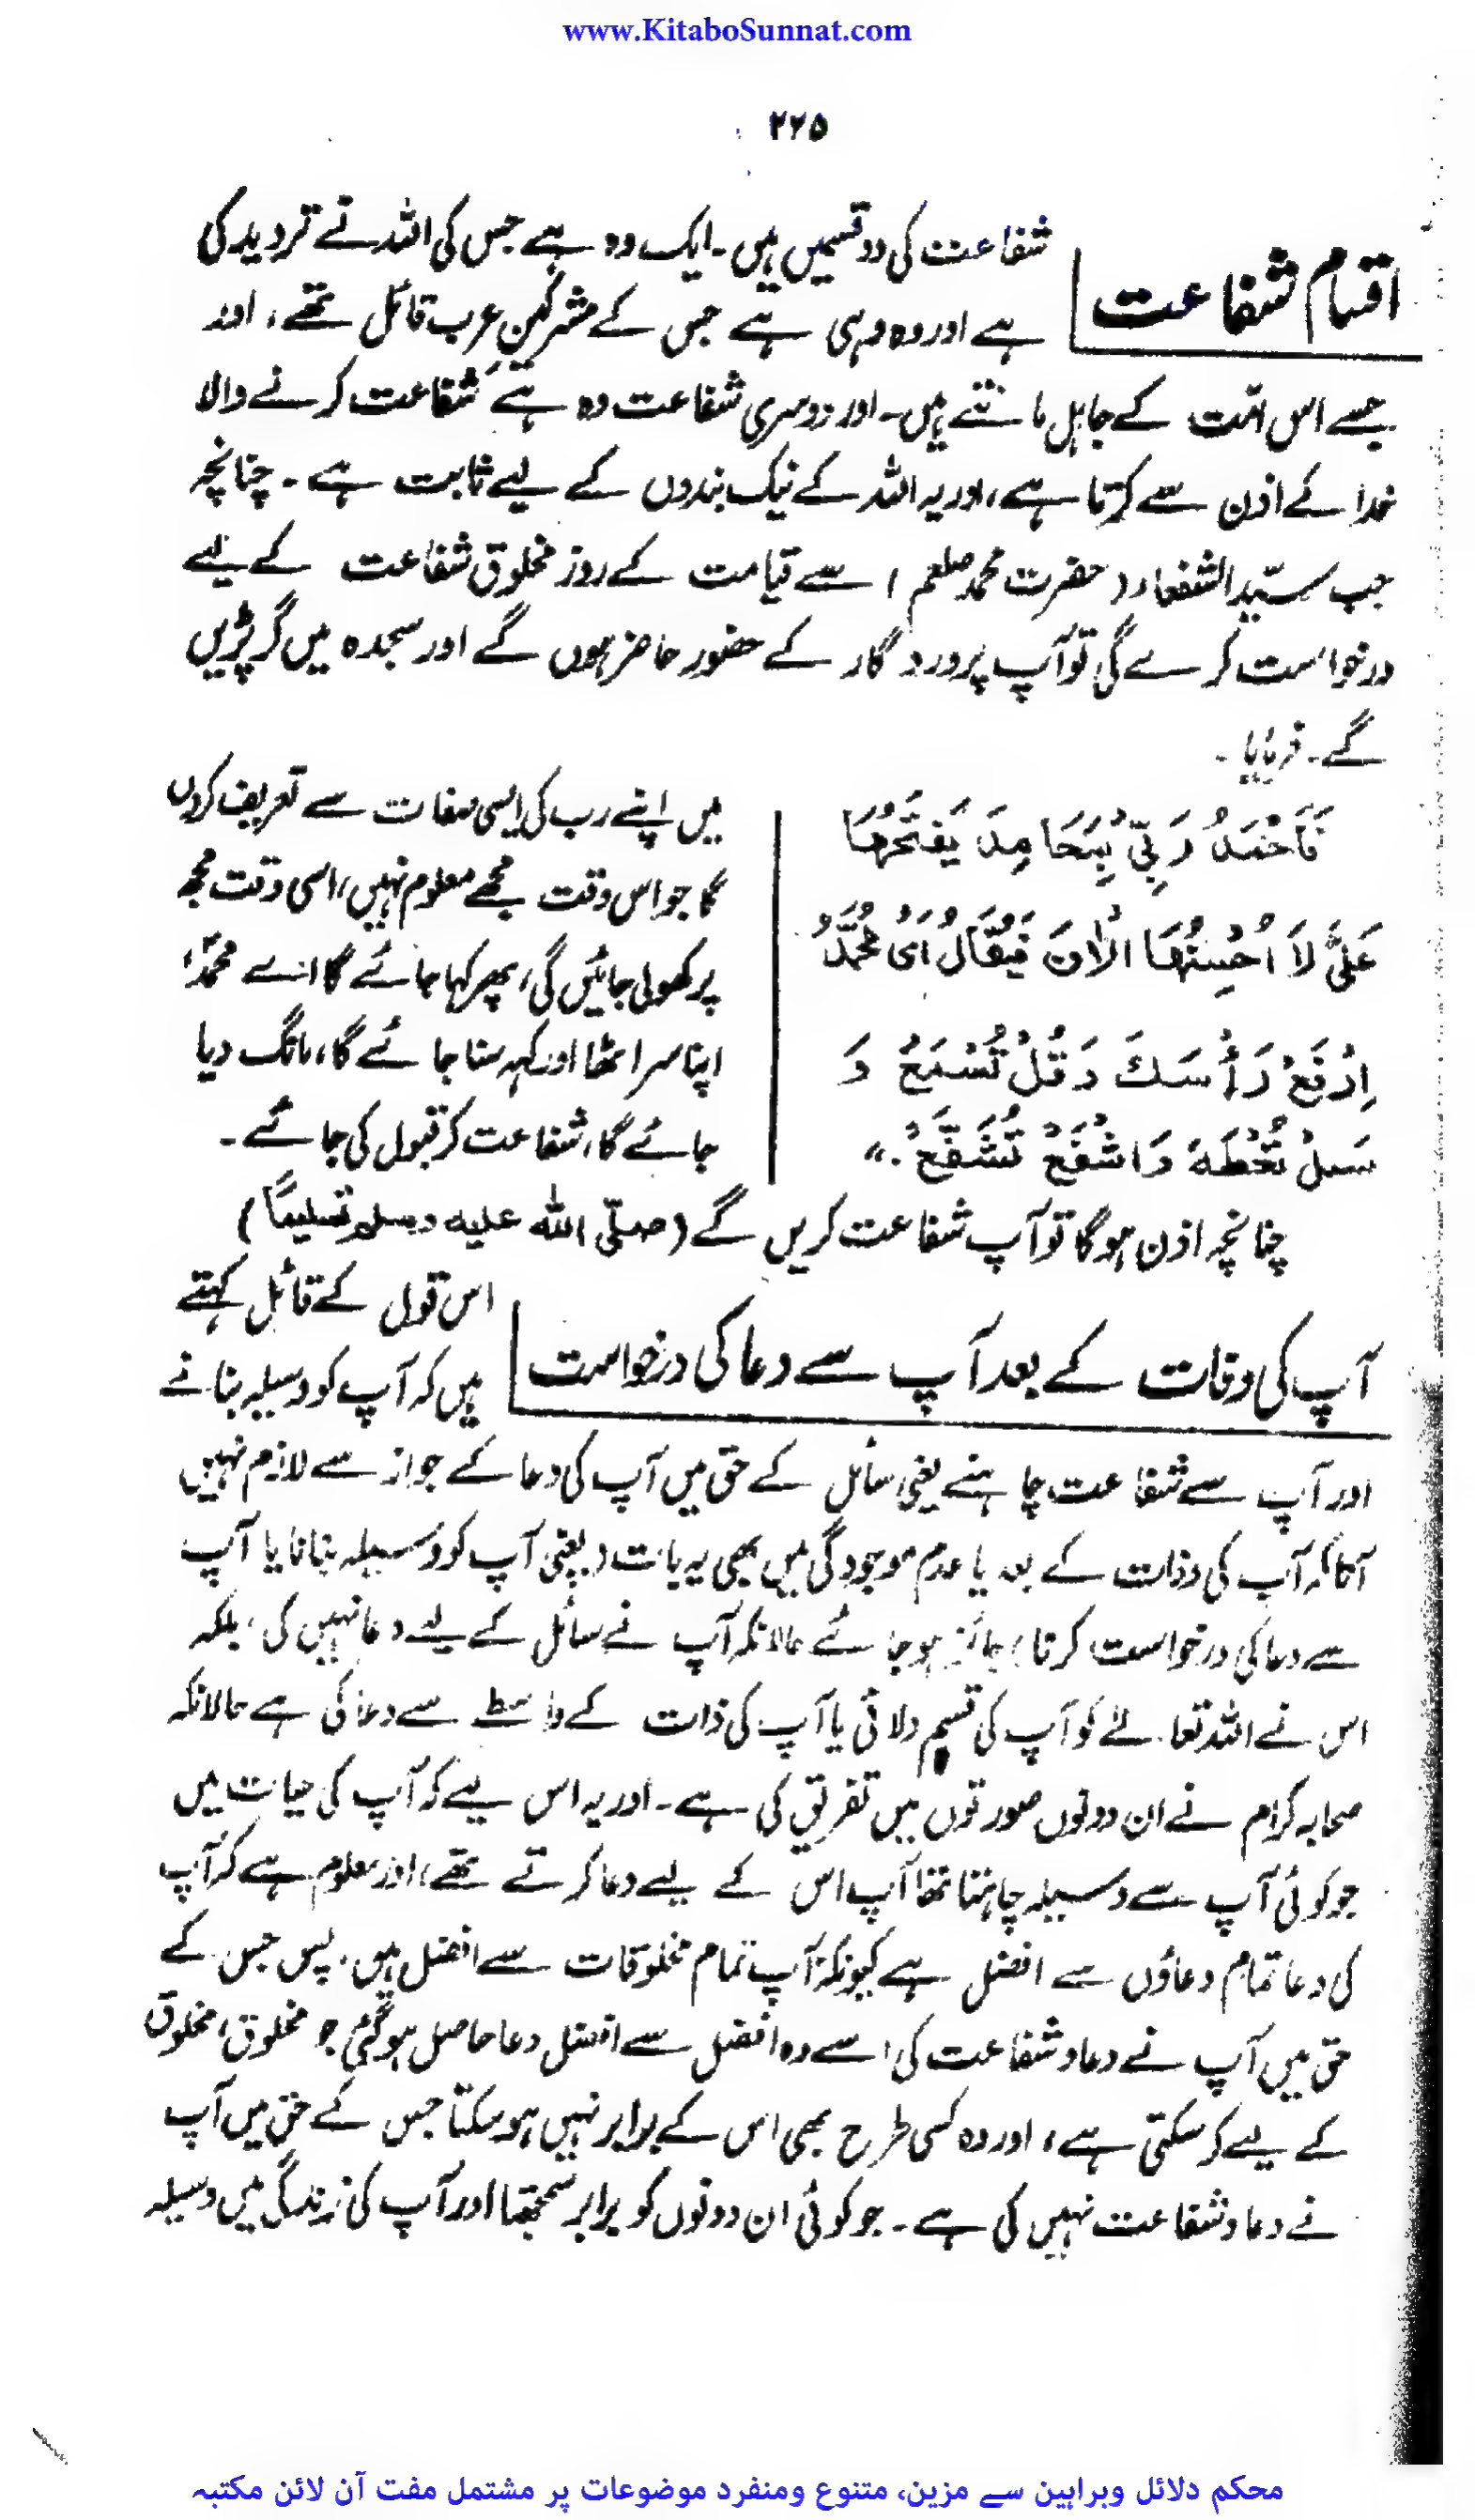 www.KitaboSunnat.com
۲۲۵
اقسام شفاعت
شفاعت کی دو قسمیں ہیں۔ ایک وہ ہے جس کی اللہ نے تردید کی
ہے اور وہ وہی ہے جس کے مشرکینِ عرب قائل تھے، اور
جسے اس امّت کے جاہل مانتے ہیں۔ اور دوسری شفاعت وہ ہے شفاعت کرنے والا
خدا کے اذن سے کرتا ہے، اور یہ اللہ کے نیک بندوں کے لیے ثابت ہے۔ چنانچہ
جب سیّد الشفعاء (حضرت محمد صلعم) سے قیامت کے روز مخلوق شفاعت کے لیے
درخواست کرے گی تو آپ پروردگار کے حضور حاضر ہوں گے اور سجدہ میں گر پڑیں
گے۔ فرمایا۔
فَاَحْمَدُ رَبِّیْ بِمَحَامِدَ یَفْتَحُهَا
عَلَیَّ لَا اُحْسِنُهَا الْاٰنَ فَیُقَالُ اَیْ مُحَمَّدُ
اِرْفَعْ رَأْسَكَ وَقُلْ تُسْمَعْ وَ
سَلْ تُعْطَهْ وَاشْفَعْ تُشَفَّعْ۔"
میں اپنے رب کی ایسی صفات سے تعریف کروں
گا جو اس وقت مجھے معلوم نہیں، اسی وقت مجھ
پر کھولی جائیں گی، پھر کہا جائے گا اے محمّد!
اپنا سر اٹھا اور کہہ سنا جائے گا، مانگ دیا
جائے گا، شفاعت کر قبول کی جائے۔
چنانچہ اذن ہوگا تو آپ شفاعت کریں گے (صلّی اللہ علیہ وسلم تسلیمًا)
آپ کی وفات کے بعد آپ سے دعا کی درخواست
اس قول کے قائل کہتے
ہیں کہ آپ کو وسیلہ بنانے
اور آپ سے شفاعت چاہنے یعنی سائل کے حق میں آپ کی دعا کے جواز سے لازم نہیں
آتا کہ آپ کی وفات کے بعد یا عدم موجودگی میں بھی یہ بات (یعنی آپ کو وسیلہ بنانا یا آپ
سے دعا کی درخواست کرنا) جائز ہو جائے حالانکہ آپ نے سائل کے لیے دعا نہیں کی، بلکہ
اس نے اللہ تعالےٰ کو آپ کی قسم دلائی یا آپ کی ذات کے واسطے سے دعا کی ہے حالانکہ
صحابہ کرام نے ان دونوں صورتوں میں تفریق کی ہے۔ اور یہ اس لیے کہ آپ کی حیات میں
جو کوئی آپ سے وسیلہ چاہتا تھا آپ اس کے لیے دعا کرتے تھے، اور معلوم ہے کہ آپ
کی دعا تمام دعاؤں سے افضل ہے کیونکہ آپ تمام مخلوقات سے افضل ہیں، پس جس کے
حق میں آپ نے دعا و شفاعت کی اسے وہ افضل سے افضل دعا حاصل ہو گئی جو مخلوق، مخلوق
کے لیے کر سکتی ہے، اور وہ کسی طرح بھی اس کے برابر نہیں ہو سکتا جس کے حق میں آپ
نے دعا و شفاعت نہیں کی ہے۔ جو کوئی ان دونوں کو برابر سمجھتا اور آپ کی زندگی میں وسیلہ
محکم دلائل وبراہین سے مزین، متنوع ومنفرد موضوعات پر مشتمل مفت آن لائن مکتبہ